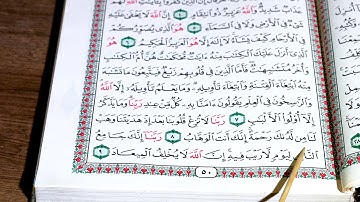 عَذَابٌ شَدِيدٌ وَٱللَّهُ عَزِيزٌ ذُو ٱنتِقَامٍ ٤ إِنَّ ٱللَّهَ لَا يَخْفَىٰ عَلَيْهِ
شَىْءٌ فِى ٱلْأَرْضِ وَلَا فِى ٱلسَّمَآءِ ٥ هُوَ ٱلَّذِى يُصَوِّرُكُمْ
فِى ٱلْأَرْحَامِ كَيْفَ يَشَآءُ لَآ إِلَٰهَ إِلَّا هُوَ ٱلْعَزِيزُ ٱلْحَكِيمُ ٦ هُوَ
ٱلَّذِىٓ أَنزَلَ عَلَيْكَ ٱلْكِتَٰبَ مِنْهُ ءَايَٰتٌ مُّحْكَمَٰتٌ هُنَّ أُمُّ ٱلْكِتَٰبِ
وَأُخَرُ مُتَشَٰبِهَٰتٌ فَأَمَّا ٱلَّذِينَ فِى قُلُوبِهِمْ زَيْغٌ فَيَتَّبِعُونَ مَا تَشَٰبَهَ
مِنْهُ ٱبْتِغَآءَ ٱلْفِتْنَةِ وَٱبْتِغَآءَ تَأْوِيلِهِۦ وَمَا يَعْلَمُ تَأْوِيلَهُۥٓ إِلَّا ٱللَّهُ
وَٱلرَّٰسِخُونَ فِى ٱلْعِلْمِ يَقُولُونَ ءَامَنَّا بِهِۦ كُلٌّ مِّنْ عِندِ رَبِّنَا وَمَا يَذَّكَّرُ
إِلَّآ أُو۟لُوا۟ ٱلْأَلْبَٰبِ ٧ رَبَّنَا لَا تُزِغْ قُلُوبَنَا بَعْدَ إِذْ هَدَيْتَنَا وَهَبْ
لَنَا مِن لَّدُنكَ رَحْمَةً إِنَّكَ أَنتَ ٱلْوَهَّابُ ٨ رَبَّنَآ إِنَّكَ جَامِعُ
ٱلنَّاسِ لِيَوْمٍ لَّا رَيْبَ فِيهِ إِنَّ ٱللَّهَ لَا يُخْلِفُ ٱلْمِيعَادَ ٩
٥٠